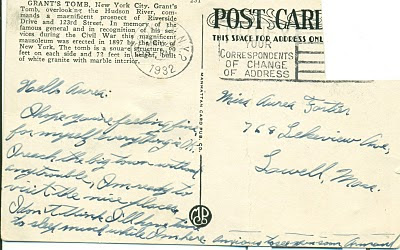 GRANT'S TOMB, New York City. Grant's
Tomb, overlooking the Hudson River, com-
mands a magnificent prospect of Riverside
Drive and 123rd Street. In memory of the
famous general and in recognition of his ser-
vices during the Civil War this magnificent
mausoleum was erected in 1897 by the City of
New York. The tomb is a square structure, 90
feet on each side and 72 feet in height, built
of white granite with marble interior.
POST CARD
THIS SPACE FOR ADDRESS ONLY
N.Y.
1932
YOUR
CORRESPONDENTS
OF CHANGE
OF ADDRESS
MANHATTAN CARD PUB. CO.
Hello Aurea:
I hope you're feeling fine,
for myself everything is O.K.
I reach the big town without
any trouble, I'm ready to
visit the nice places,
I don't think I'll have time
to sleep much while I'm here
Miss Aurea Fortier
768 Lakeview Ave,
Lowell, Mass.